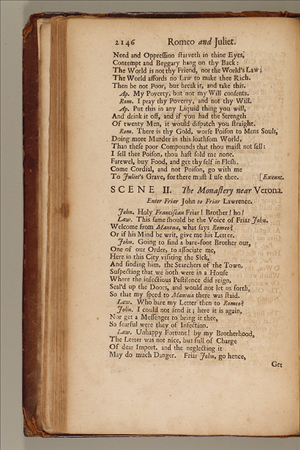 2146 Romeo and Juliet.
Need and Oppression starveth in thine Eyes,
Contempt and Beggary hang on thy Back:
The World is not thy Friend, nor the World's Law;
The World affords no Law to make thee Rich.
Then be not Poor, but break it, and take this.
Ap. My Poverty, but not my Will consents.
Rom. I pray thy Poverty, and not thy Will.
Ap. Put this in any Liquid thing you will,
And drink it off, and if you had the Strength
Of twenty Men, it would dispatch you straight.
Rom. There is thy Gold, worse Poison to Mens Souls,
Doing more Murder in this loathsom World,
Than these poor Compounds that thou maist not sell:
I sell thee Poison, thou hast sold me none.
Farewel, buy Food, and get thy self in Flesh.
Come Cordial, and not Poison, go with me
To Juliet's Grave, for there must I use thee. [Exeunt.
SCENE II. The Monastery near Verona.
Enter Friar John to Friar Lawrence.
John. Holy Franciscan Friar! Brother! ho!
Law. This same should be the Voice of Friar John.
Welcome from Mantua, what says Romeo?
Or if his Mind be writ, give me his Letter.
John. Going to find a bare-foot Brother out,
One of our Order, to associate me,
Here in this City visiting the Sick,
And finding him, the Searchers of the Town,
Suspecting that we both were in a House
Where the infectious Pestilence did reign,
Seal'd up the Doors, and would not let us forth,
So that my speed to Mantua there was staid.
Law. Who bare my Letter then to Romeo?
John. I could not send it; here it is again,
Nor get a Messenger to bring it thee,
So fearful were they of Infection.
Law. Unhappy Fortune! by my Brotherhood,
The Letter was not nice, but full of Charge
Of dear Import, and the neglecting it
May do much Danger. Friar John, go hence,
Get